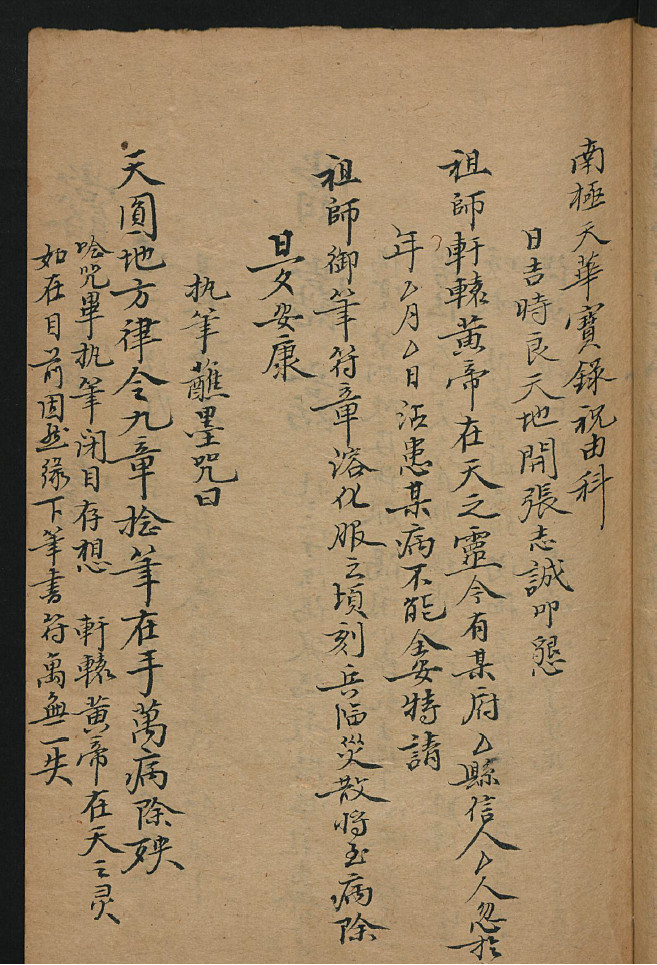 南極天華寶錄祝由科
日吉時良天地開張志誠叩懇
祖師軒轅黃帝在天之靈今有某府厶縣信人厶人忽於
年厶月厶日沾患某病不能全安特請
祖師御筆符章溶化服之頃刻兵臨災散將至病除
安康
执筆蘸墨咒曰
天圓地方律令九章捻筆在手萬病除殃
咒畢执筆闭目存想 軒轅黃帝在天之灵
如在目前固然缘下筆書符萬無一失